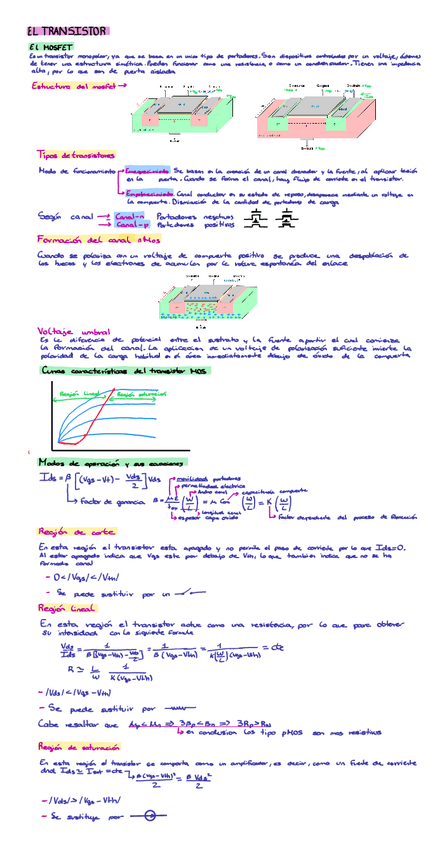 EL TRANSISTOR
EL MOSFET
Es un transistor monopolar, ya que se basa en un unico tipo de portadores. Son dispositivos controlados por un voltaje, ademas
de tener una estructura simétrica. Pueden funcionar como una resistencia o como un condensador. Tienen una impedancia
alta, por lo que son de puerta aislada
Estructura del mosfet →
Tipos de transistores
Modo de funcionamiento Enriquecimiento Se basan en la creación de un canal drenador y la fuente, al aplicar tensión
en la puerta. Cuando se forma el canal, hay flujo de corriente en el transistor.
Empobrecimiento Canal conductor en su estado de reposo, mediante un voltaje en
la compuerta. Disminución de la cantidad de portadores de carga
Según canal → Canal-n Portadores negativos
→ Canal-p Portadores positivos
Formación del canal nMos
Cuando se polariza con un voltaje de compuerta positivo se produce una despoblación de
los huecos y los electrones se acumulan por la
Voltaje umbral
Es la diferencia de potencial entre el sustrato y la fuente a partir el cual comienza
la formación del canal. La aplicación de un voltaje de polarización suficiente invierte la
polaridad de la carga habitual en el área inmediatamente debajo de óxido de la compuerta
Curvas características del transistor MOS
Región lineal Región saturación
Modos de operación y sus ecuaciones
Ids = β [(Vgs - Vt) - Vds/2] Vds
movilidad portadores
permitividad electrica
Ancho canal
capacitancia compuerta
Factor de ganancia β = με/tox (W/L) = μ Cox (W/L) = K (W/L)
longitud canal
espesor capa oxido
Factor dependiente del proceso de fabricación
Región de corte
En esta región el transistor esta apagado y no permite el paso de corriente por lo que Ids=0.
Al estar apagado indica que Vgs este por debajo de Vth, lo que tambien indica que no se ha
formado canal
- 0</Vgs/</Vth/
- Se puede sustituir por un
Región Lineal
En esta región el transistor actua como una resistencia, por lo que para obtener
su intensidad con la siguiente formula
Vds/Ids = 1/β[(Vgs-Vth)-Vds/2] = 1/β(Vgs-Vth) = 1/K(W/L)(Vgs-Vth) = cte
R ≃ L/W 1/K(Vgs-Vth)
- /Vds/</Vgs-Vth/
- Se puede sustituir por
Cabe resaltar que μp<μn => 3βp<βn => 3Rp>Rn
en conclusion los tipo pMOS son mas resistivos
Región de saturación
En esta región el transistor se comporta como un amplificador, es decir, como un fuente de corriente
dnd Ids ≃ Isat = cte → β(Vgs-Vth)²/2 = β Vds²/2
- /Vds/>/Vgs-Vth/
- Se sustituye por